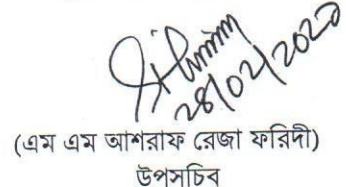 28/02/2020
(এম এম আশরাফ রেজা ফরিদী)
উপসচিব